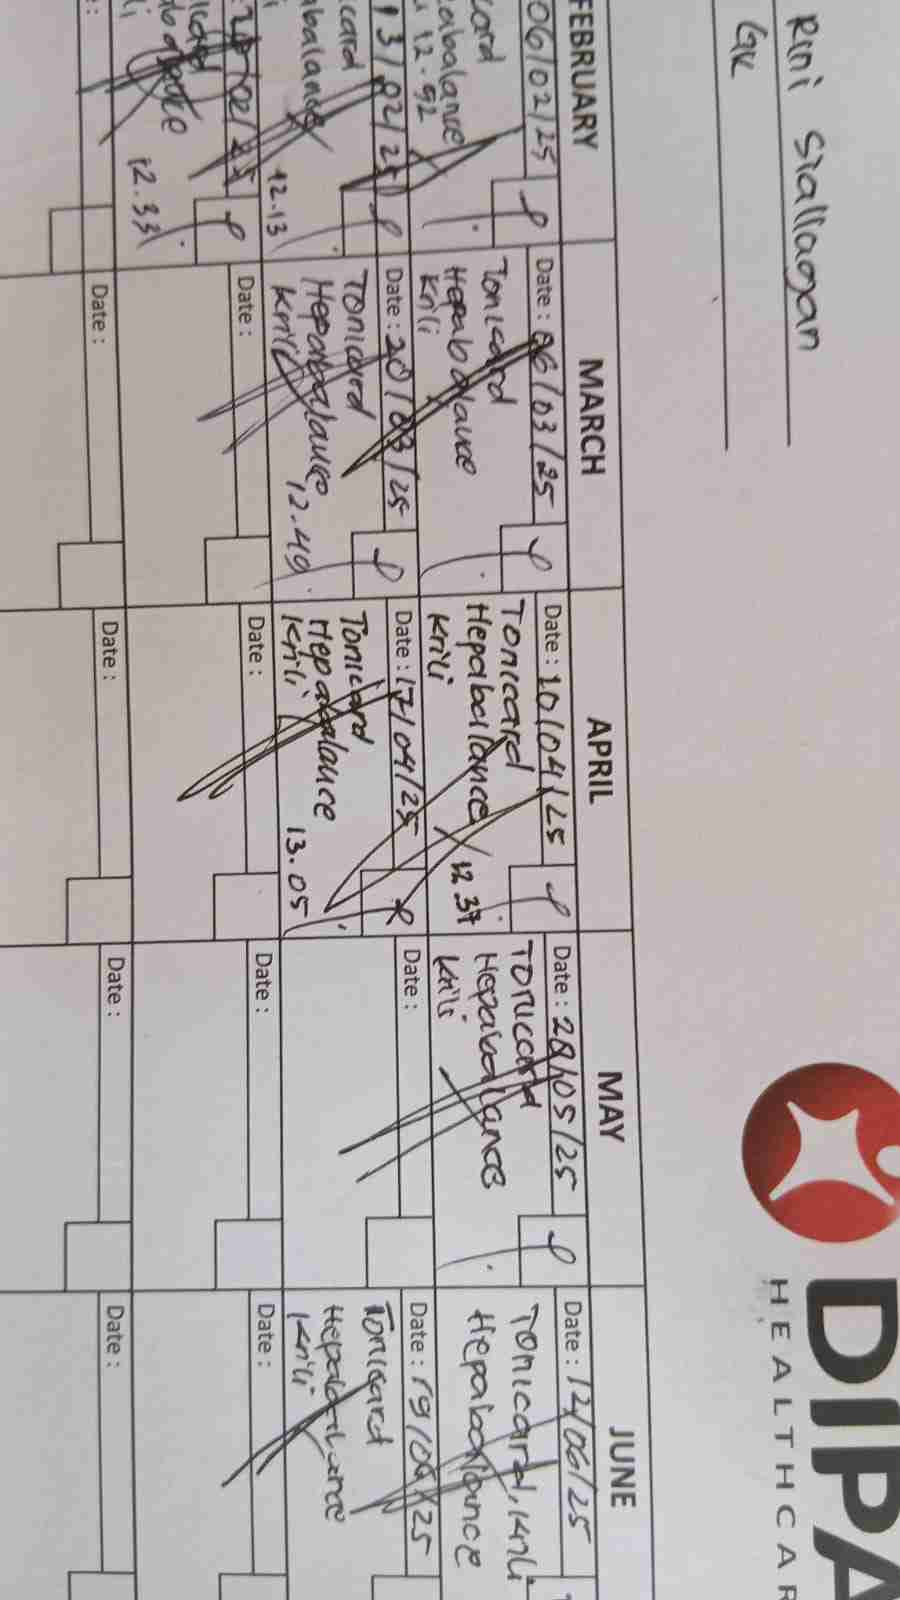 Rini Siallagan
GK
DIPA
HEALTHCAR
FEBRUARY
06/02/25
card
abalance
12.92
13/02/25
card
abalance
12.13
12.33
Date :
MARCH
Date : 06/03/25
Tonicard
Hepabalance
Krili
Date : 20/03/25
Tonicard
Hepabalance
Krili
12.49
Date :
Date :
APRIL
Date : 10/04/25
Tonicard
Hepabalance
Krili
12.37
Date : 17/04/25
Tonicard
Hepabalance
Krili
13.05
Date :
Date :
MAY
Date : 28/05/25
Tonicard
Hepabalance
Krili
Date :
Date :
Date :
JUNE
Date : 12/06/25
Tonicard, Krili
Hepabalance
Date : 19/06/25
Tonicard
Hepabalance
Krili
Date :
Date :